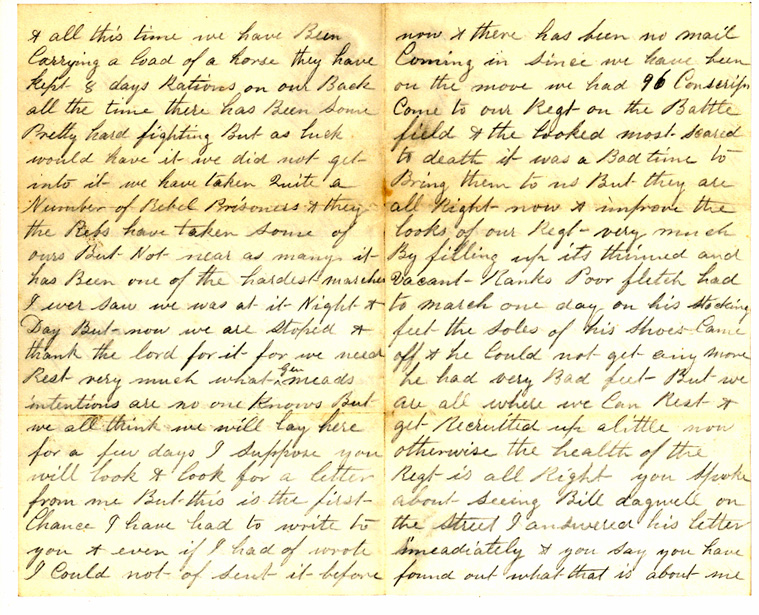 & all this time we have Been
Carrying a Load of a horse they have
kept 8 days Rations on our Back
all the time there has Been Some
Pretty hard fighting But as luck
would have it we did not get
into it we have taken Quite a
Number of Rebel Prisoners & they
the Rebs have taken Some of
ours But Not near as many it
has Been one of the hardest marches
I ever Saw we was at it Night &
Day But now we are Stoped &
thank the lord for it for we need
Rest very much what Gen meads
intentions are no one Knows But
we all think we will lay here
for a few days I Suppose you
will look & look for a letter
from me But this is the first
Chance I have had to write to
you & even if I had of wrote
I Could not of Sent it before
now & there has been no mail
Coming in Since we have been
on the move we had 96 Conscrips
Come to our Regt on the Battle
field & the looked most Scared
to death it was a Bad time to
Bring them to us But they are
all Right now & improve the
looks of our Regt very much
By filling up its thinned and
vacant Ranks Poor fletch had
to march one day on his stocking
feet the Soles of his Shoes Came
off & he Could not get any more
he had very Bad feet But we
are all where we Can Rest &
get Recruited up alittle now
otherwise the health of the
Regt is all Right you Spoke
about Seeing Bill dagwell on
the Street I answered his letter
imeadiately & you Say you have
found out what that is about me